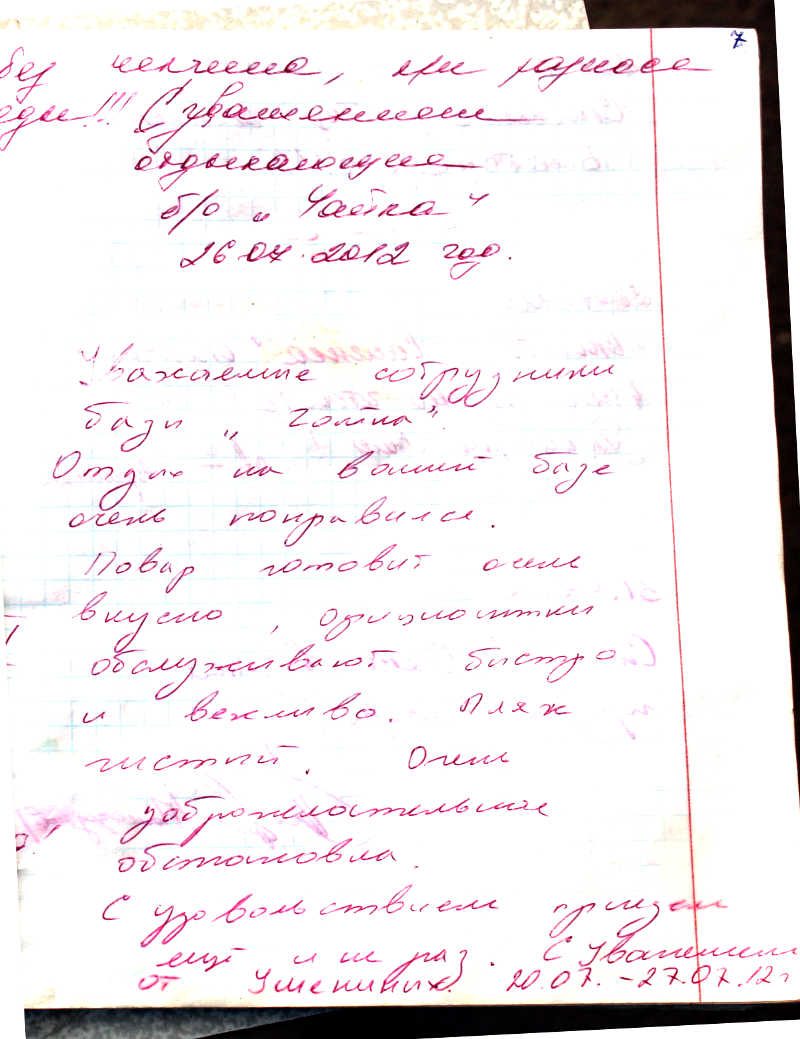 7
без чепчика, при разносе
еды!!! С уважением
отдыхающие
б/о „Чайка"
26.07.2012 год.
Уважаемые сотрудники
базы „Чайка".
Отдых на вашей базе
очень понравился.
Повар готовит очень
вкусно, официантки
обслуживают быстро
и вежливо. Пляж
чистый. Очень
доброжелательная
обстановка.
С удовольствием приедем
ещё и не раз. С Уважением
от 20.07.-27.07.12г